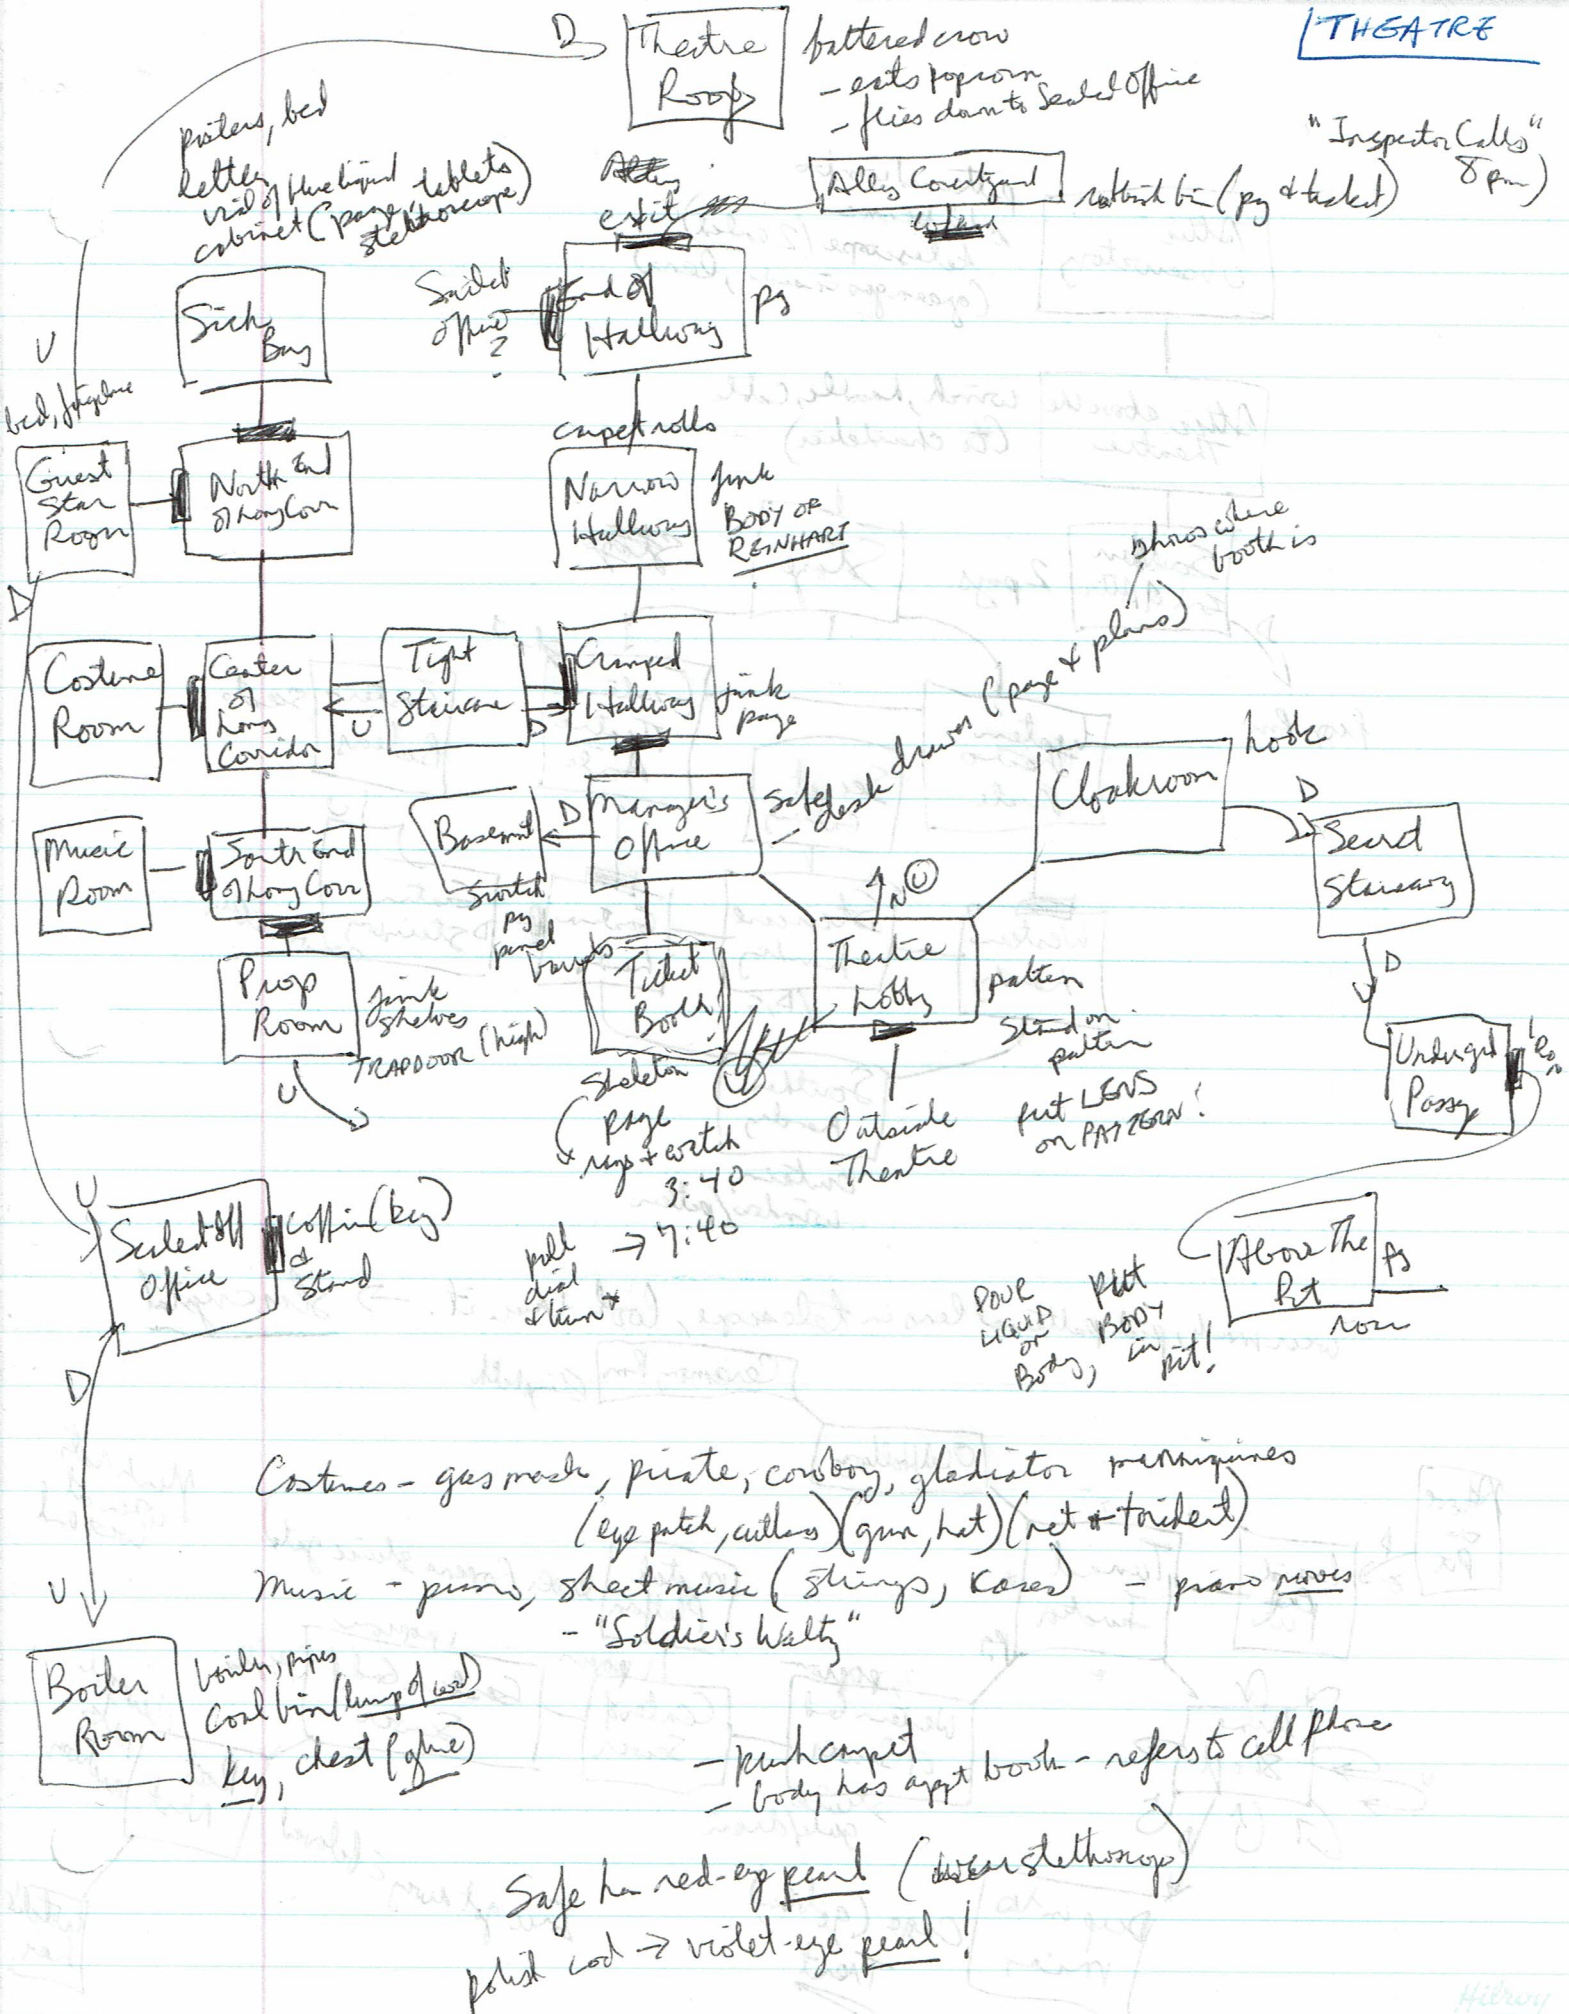 THEATRE
D
Theatre
Roof
battered crow
- eats popcorn
- flies down to Sealed Office
"Inspector Calls"
8 pm)
posters, bed
letter
vial of blue liquid
cabinet (page, tablets
stethoscope)
exit
Alley Courtyard
rubbish bin (pg & ticket)
Sick
Bay
office
?
End of
Hallway
pg
U
bed, fireplace
carpet rolls
Guest
Star
Room
North End
of Long Corr
Narrow
Hallway
junk
BODY OF
REINHART
shows where
booth is
D
Costume
Room
Center
of
Long
Corridor
U
Tight
Staircase
D
Cramped
Hallway
junk
page
Music
Room
South End
of Long Corr
Basement
D
Manager's
Office
safe
- desk drawer (page & plans)
Cloakroom
hook
D
Secret
Stairway
Switch
pg
panel
N
U
Prop
Room
junk
shelves
TRAPDOOR (high)
U
Ticket
Booth
Theatre
Lobby
pattern
Stand on
pattern
put LENS
on PATTERN!
D
U
Undergrd
Passge
Skeleton
page
rags + watch
3:40
→ 7:40
pull
dial
& turn
Outside
Theatre
U
Sealed Off
Office
coffin (key)
&
Stand
POUR
LIQUID
on
Body,
PUT
BODY
in
pit!
Above The
Pit
pg
D
Costumes - gas mask, pirate, cowboy, gladiator manniquines
(eye patch, cutlass) (gun, hat) (net & trident)
Music - piano, sheet music (strings, Kases) - piano moves
- "Soldier's Waltz"
U
Boiler
Room
boiler, pipes
coal bin (lump of coal)
key, chest (glue)
- push carpet
- body has appt book - refers to cell phone
Safe has red-eye pearl (wear stethoscope)
polish coal → violet-eye pearl!
Hilroy